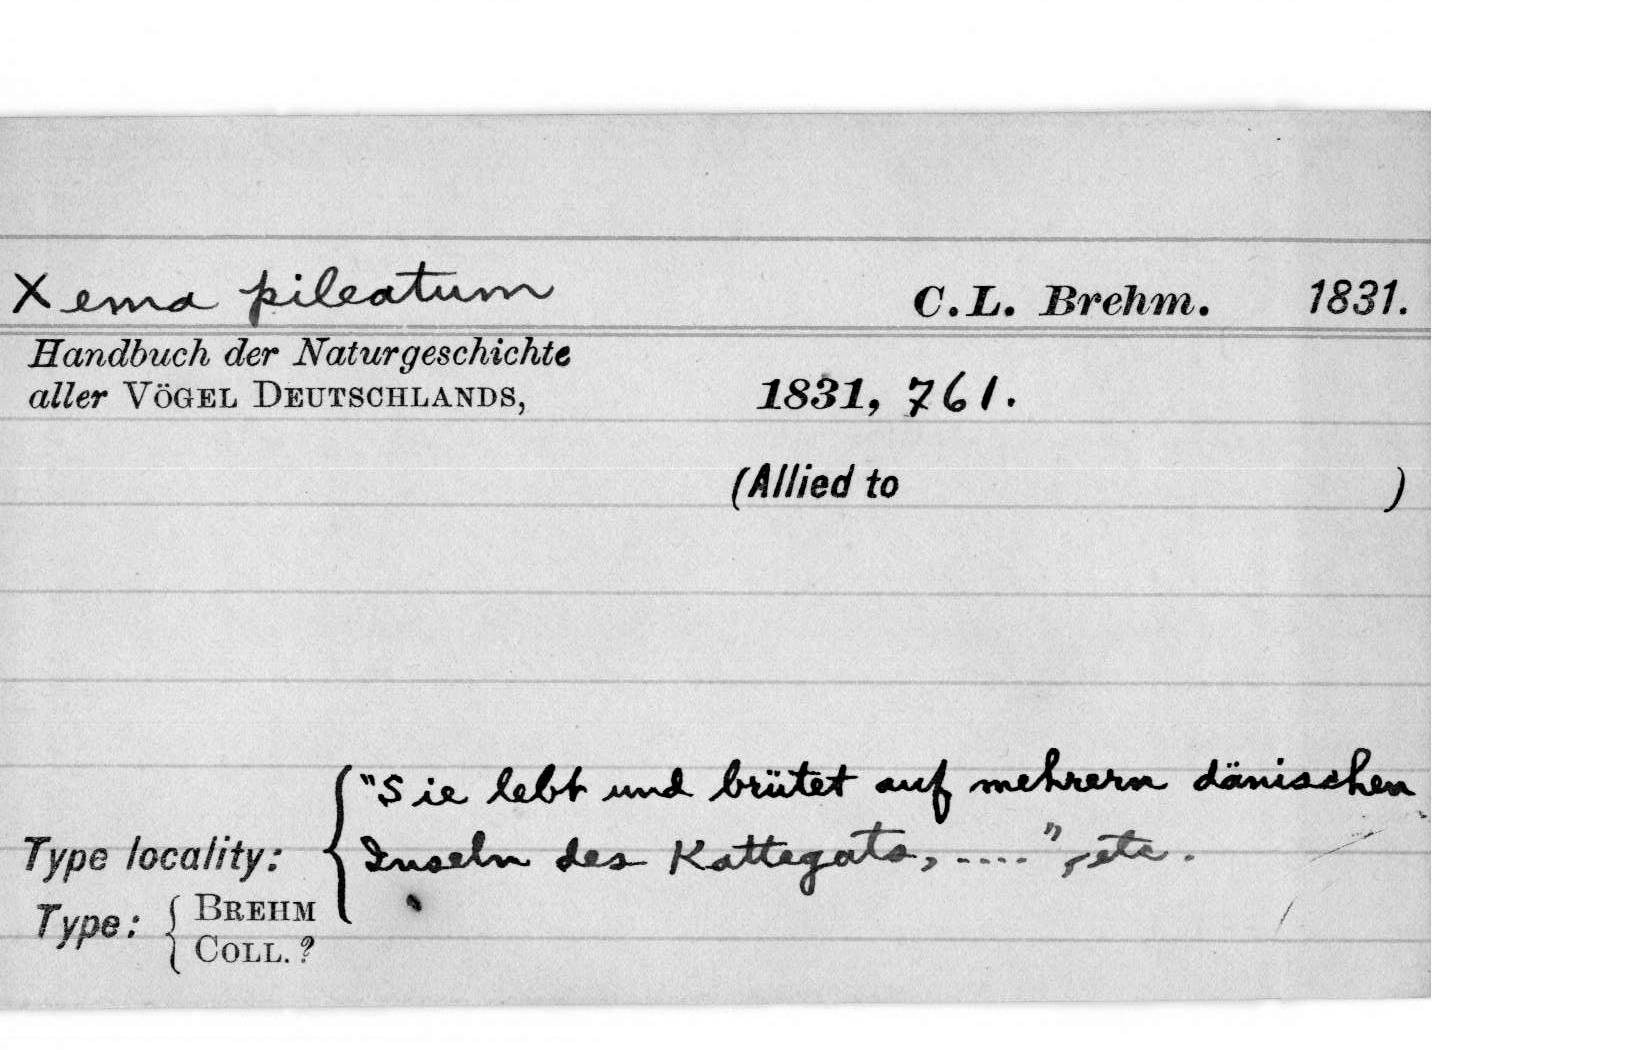 Xema pileatum C.L. Brehm. 1831.
Handbuch der Naturgeschichte
aller VÖGEL DEUTSCHLANDS, 1831, 761.
(Allied to )
"Sie lebt und brütet auf mehrern dänischen
Type locality: Inseln des Kattegats, ....", etc.
Type: BREHM
COLL. ?